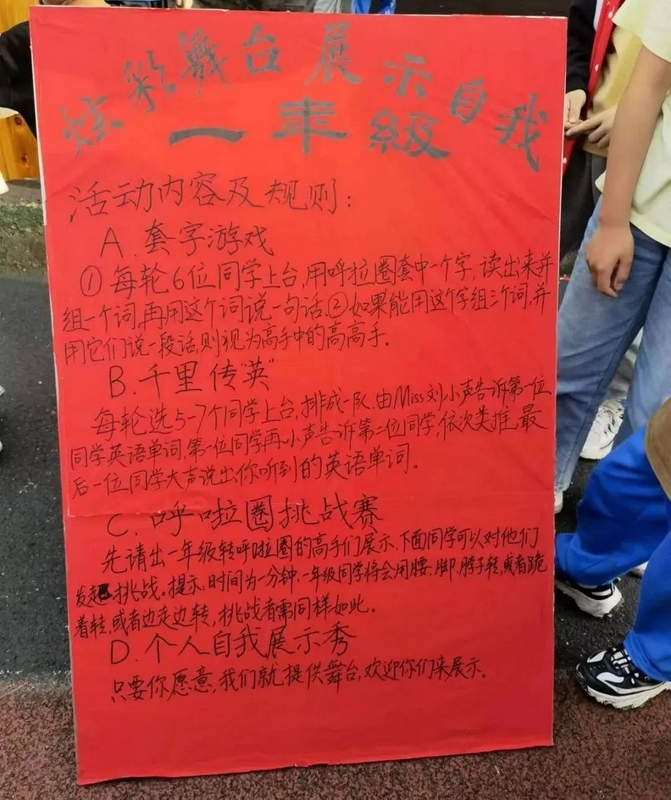 炫彩舞台展示自我
一年級
活动内容及规则:
A. 套字游戏
①每轮6位同学上台,用呼拉圈套中一个字,读出来并
组一个词,再用这个词说一句话.②如果能用这个字组三个词,并
用它们说一段话,则视为高手中的高高手.
B. 千里传“英”
每轮选5-7个同学上台,排成一队.由Miss刘小声告诉第一位
同学英语单词.第一位同学再小声告诉第二位同学,依次类推,最
后一位同学大声说出你听到的英语单词.
C. 呼啦圈挑战赛
先请出一年级转呼啦圈的高手们展示.下面同学可以对他们
发起挑战.提示.时间为一分钟.一年级同学将会用腰.脚.脖子转,或者跪
着转,或者边走边转,挑战者需同样如此.
D. 个人自我展示秀
只要你愿意,我们就提供舞台,欢迎你们来展示.